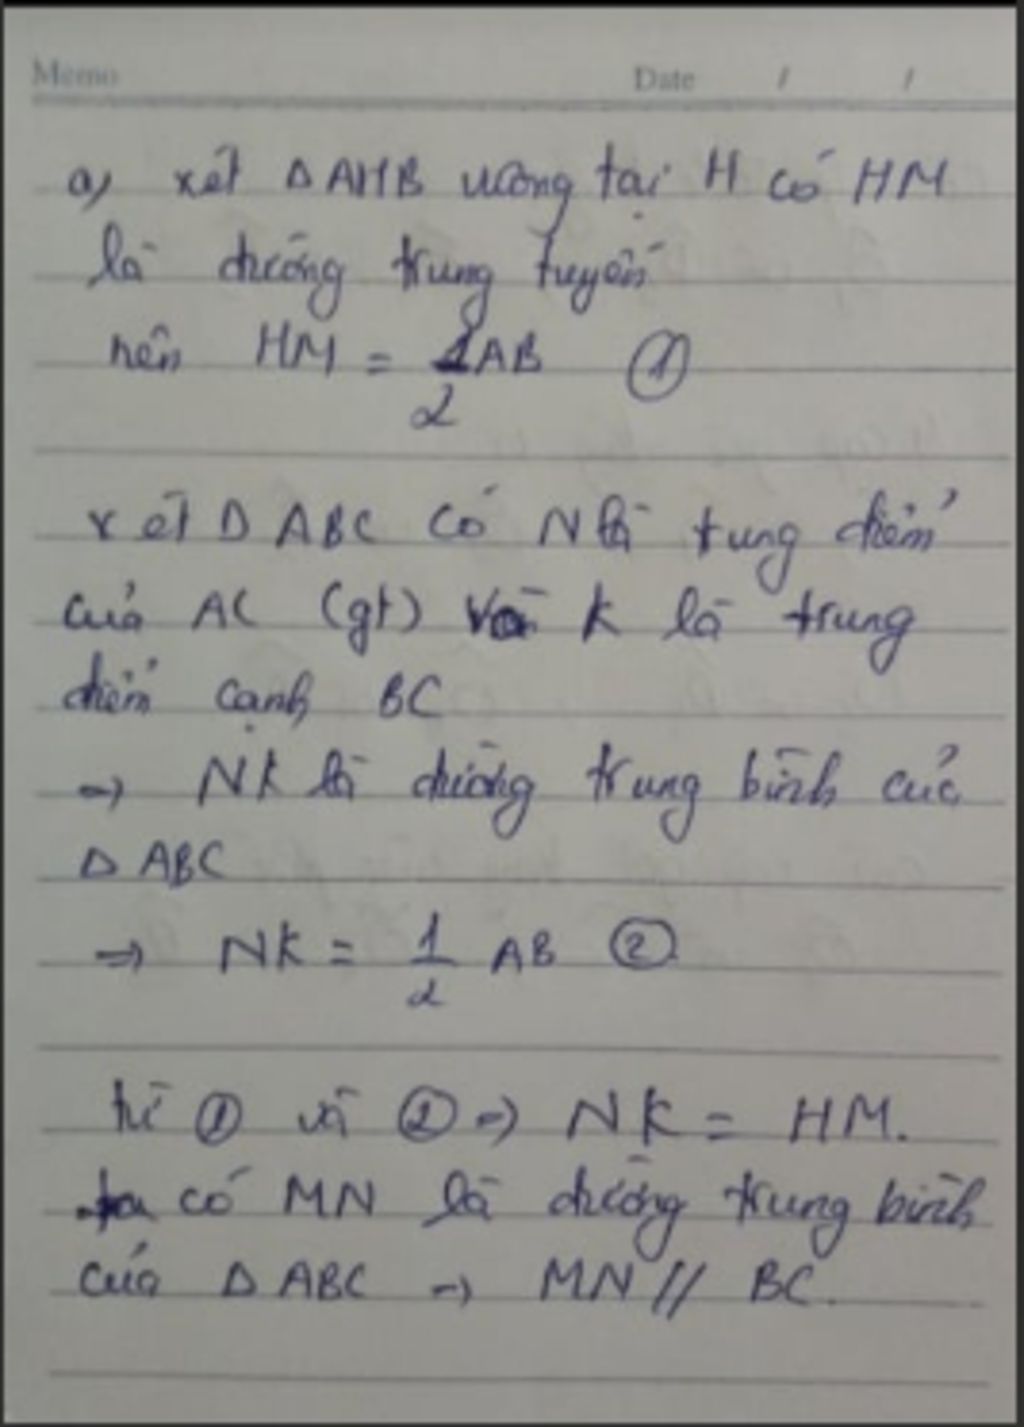 Memo Date / /
a, xét Δ AHB vuông tại H có HM
là đường trung tuyến
nên HM = 1/2 AB ①
xét Δ ABC có N là tung điểm
của AC (gt) và K là trung
điểm cạnh BC
=> NK là đường trung bình của
Δ ABC
=> NK = 1/2 AB ②
từ ① và ② => NK = HM.
ta có MN là đường trung bình
của Δ ABC => MN // BC.